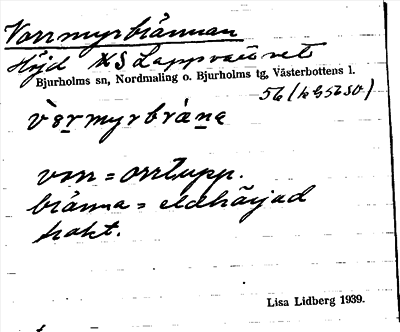 Vorrmyrbrännan
Höjd NS Lappvattnet
Bjurholms sn, Nordmaling o. Bjurholms tg, Västerbottens l.
56 (kG5650)
vèrmyrbràna
vorr = orrtupp.
bränna = eldhärjad
trakt.
Lisa Lidberg 1939.